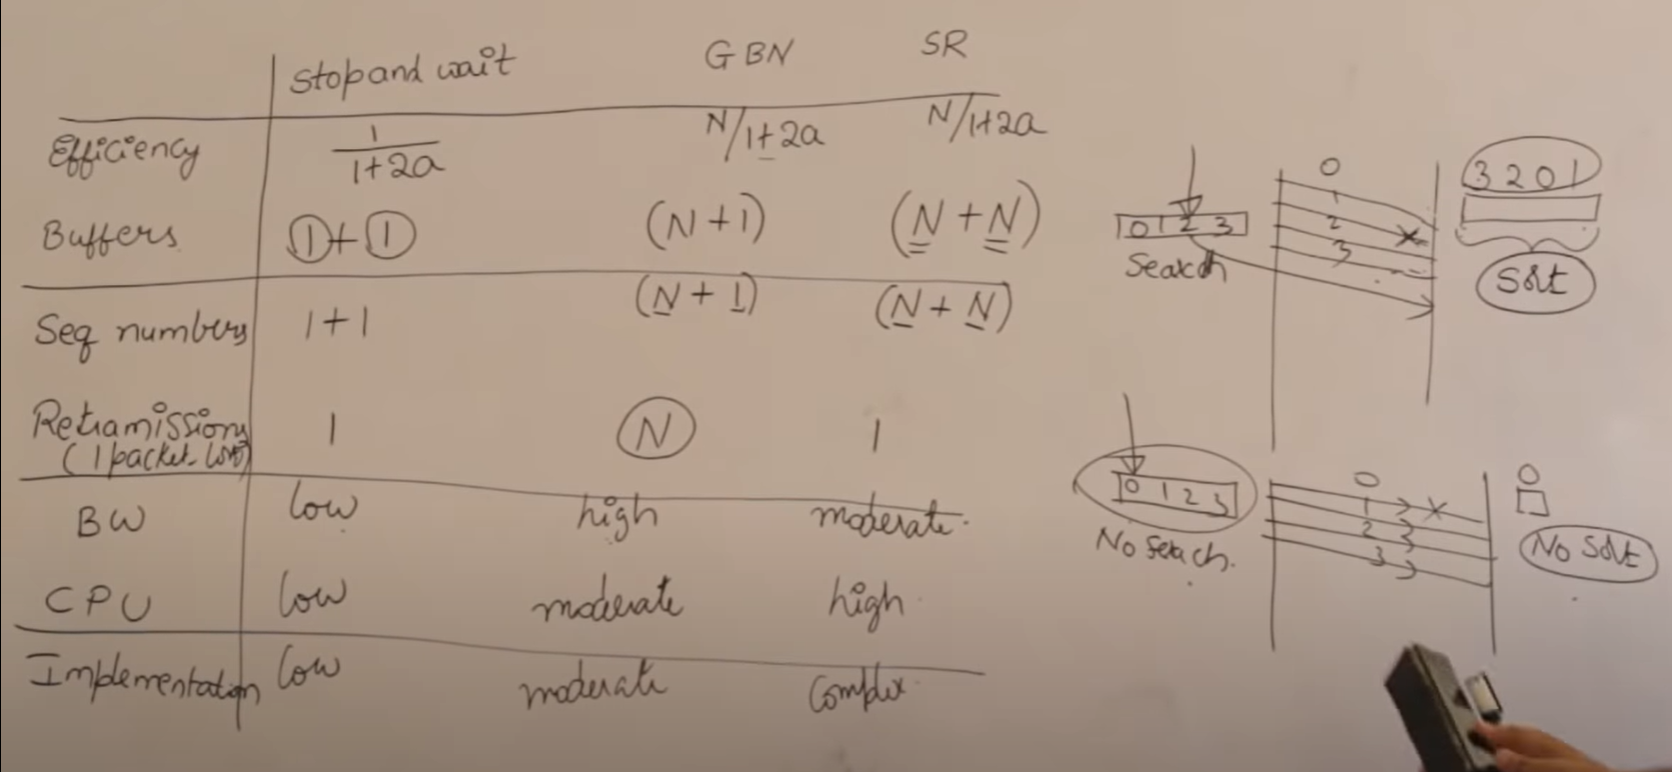 Stop and wait GBN SR
Efficiency 1/1+2a N/1+2a N/1+2a
Buffers 1+1 (N+1) (N+N)
Seq numbers 1+1 (N+1) (N+N)
Retramissions 1 N 1
(1 packet lost)
BW low high moderate.
CPU low moderate high.
Implementation low moderate Complex.
0
1
2
3
0 1 2 3
Search
3 2 0 1
Sort
0
1
2
3
0 1 2 3
No Seach.
0
No Sort